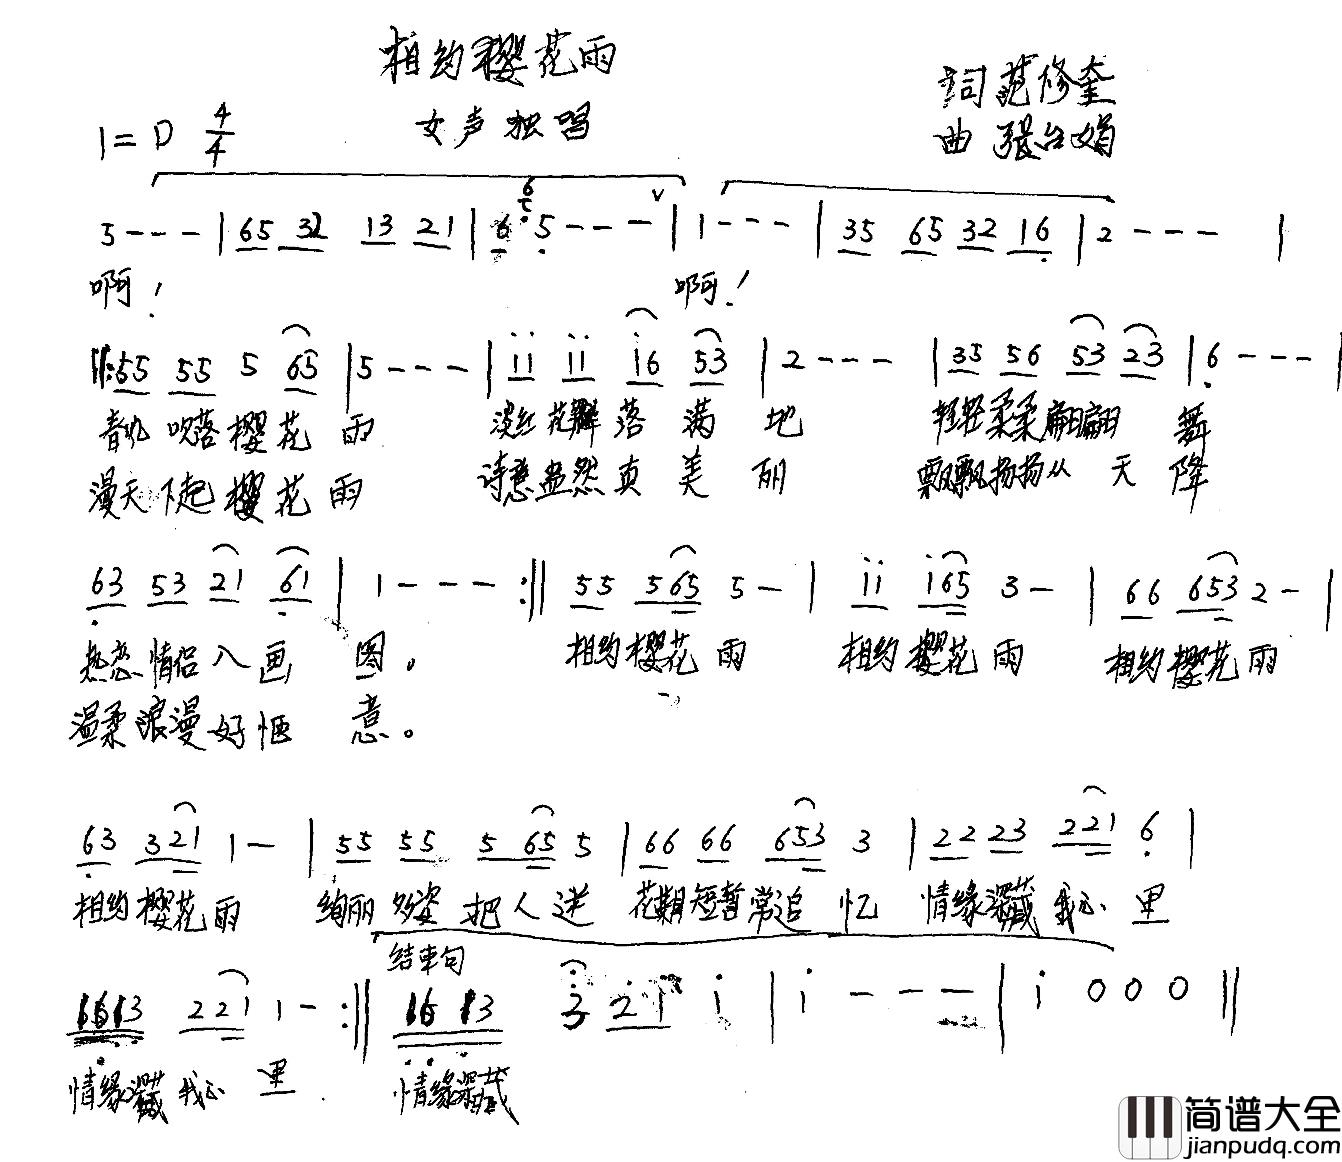 相约樱花雨
女声独唱
词 范修奎
曲 張台娟
1=D 4/4
5 - - - | 65 32 13 21 | 6 5 - - - | 1 - - - | 35 65 32 16 | 2 - - - |
啊! 啊!
||: 55 55 5 65 | 5 - - - | i i i i i6 53 | 2 - - - | 35 56 53 23 | 6 - - - |
春风 吹落 樱花 雨 淡红 花瓣 落 满 地 轻轻柔柔翩翩 舞
漫天下起樱花雨 诗意盎然真美丽 飘飘扬扬从天降
63 53 21 61 | 1 - - - :|| 55 565 5 - | i i i65 3 - | 66 653 2 - |
热恋情侣入画 图。 相约樱花 雨 相约樱花 雨 相约樱花雨
温柔浪漫好惬 意。
63 321 1 - | 55 55 5 65 5 | 66 66 653 3 | 22 23 221 6 |
相约樱花雨 绚丽 多姿 把人迷 花期短暂常追 忆 情缘深藏 我心 里
结束句
1613 221 1 - :|| 16 13 3 2i i | i - - - | i 0 0 0 ||
情缘深藏 我心 里 情缘深藏
简谱大全
jianpudq.com